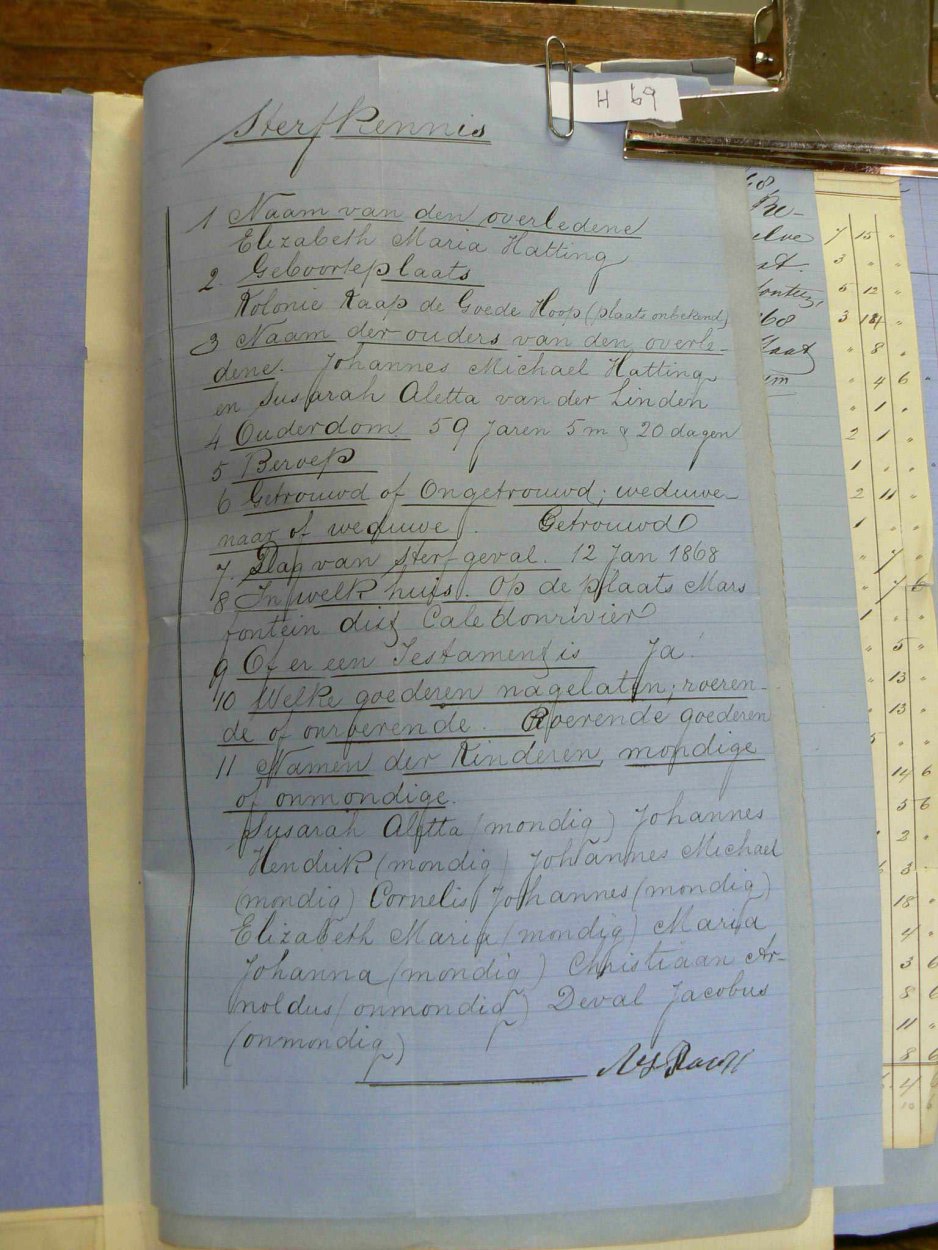 H 69
Sterfkennis
1 Naam van den overledene
Elizabeth Maria Hatting
2. Geboorteplaats
Kolonie Kaap de Goede Hoop (plaats onbekend)
3 Naam der ouders van den overle-
dene. Johannes Michael Hatting
en Susarah Aletta van der Linden
4 Ouderdom 59 Jaren 5 m & 20 dagen
5 Beroep
6 Getrouwd of Ongetrouwd; weduwe-
naar of weduwe. Getrouwd
7. Dag van sterfgeval. 12 Jan 1868
8 In welk huis. Op de plaats Mars
fontein dist Caledonrivier
9 Of er een Testament is Ja.
10 Welke goederen nagelaten; roeren-
de of onroerende. Roerende goederen
11 Namen der Kinderen, mondige
of onmondige.
Susarah Aletta (mondig) Johannes
Hendrik (mondig) Johannes Michael
(mondig) Cornelis Johannes (mondig)
Elizabeth Maria (mondig) Maria
Johanna (mondig) Christiaan Ar-
noldus (onmondig) Deval Jacobus
(onmondig)